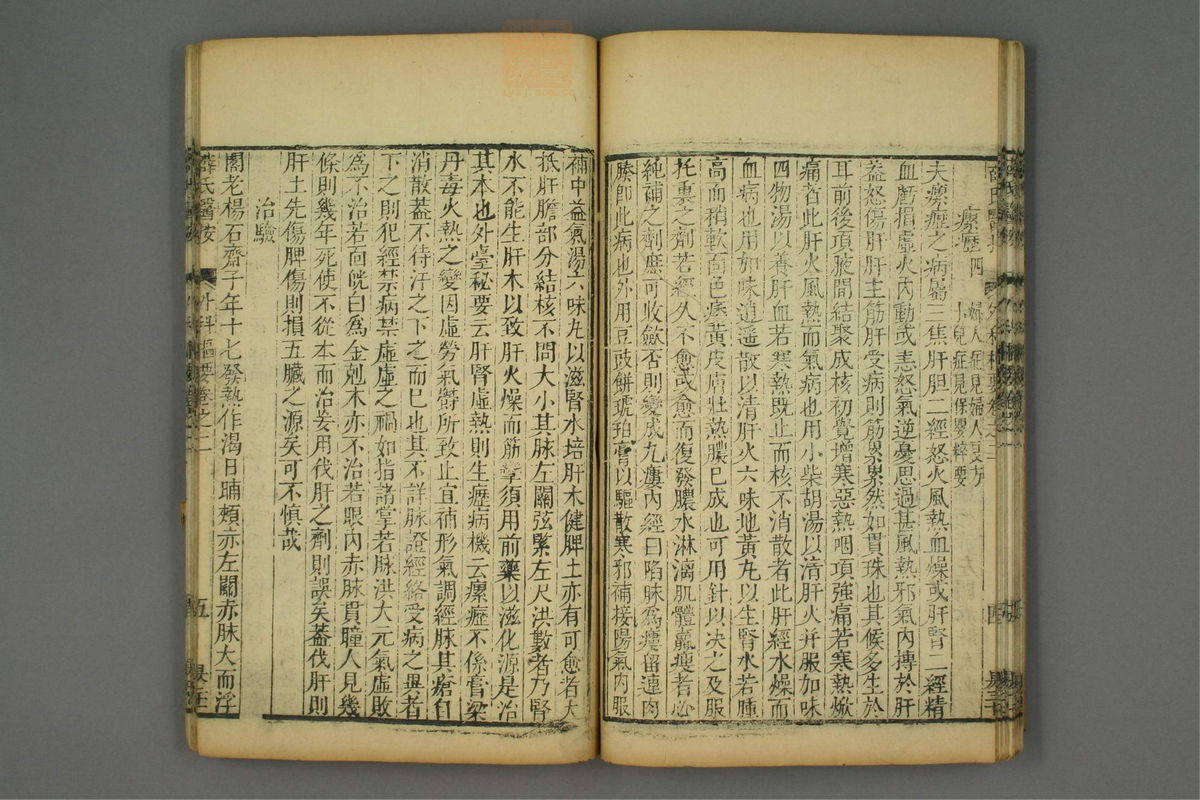 瘰癧四
婦人症見婦人良方
小兒症見保嬰粹要
夫瘰癧之病屬三焦肝胆二經怒火風熱血燥或肝腎二經精
血虧損虛火內動或恚怒氣逆憂思過甚風熱邪氣內搏於肝
葢怒傷肝肝主筋肝受病則筋累累然如貫珠也其候多生於
耳前後項腋間結聚成核初覺增寒惡熱咽項強痛若寒熱焮
痛者此肝火風熱而氣病也用小柴胡湯以清肝火并服加味
四物湯以養肝血若寒熱既止而核不消散者此肝經水燥而
血病也用加味逍遥散以清肝火六味地黃丸以生腎水若腫
高而稍軟面色痿黃皮膚壯熱膿已成也可用針以决之及服
托裏之劑若經久不愈或愈而復發膿水淋漓肌體羸瘦者必
純補之劑庶可收歛否則變成九瘻內經曰陷脉爲瘻留連肉
腠即此病也外用豆豉餅琥珀膏以驅散寒邪補接陽氣內服
補中益氣湯六味丸以滋腎水培肝木健脾土亦有可愈者大
抵肝膽部分結核不問大小其脉左關弦緊左尺洪數者乃腎
水不能生肝木以致肝火燥而筋攣須用前藥以滋化源是治
其本也外臺秘要云肝腎虛熱則生癧病機云瘰癧不係膏粱
丹毒火熱之變因虛勞氣鬱所致止宜補形氣調經脉其瘡自
消散葢不待汗之下之而已也其不詳脉證經絡受病之異者
下之則犯經禁病禁虛虛之禍如指諸掌若脉洪大元氣虛敗
爲不治若面㿠白爲金剋木亦不治若眼內赤脉貫瞳人見幾
條則幾年死使不從本而治妄用伐肝之劑則誤矣葢伐肝則
肝土先傷脾傷則損五臟之源矣可不慎哉
治驗
閣老楊石齋子年十七發熱作渴日晡頰赤左關赤脉大而浮
薛氏醫按
外科樞要卷之二
五